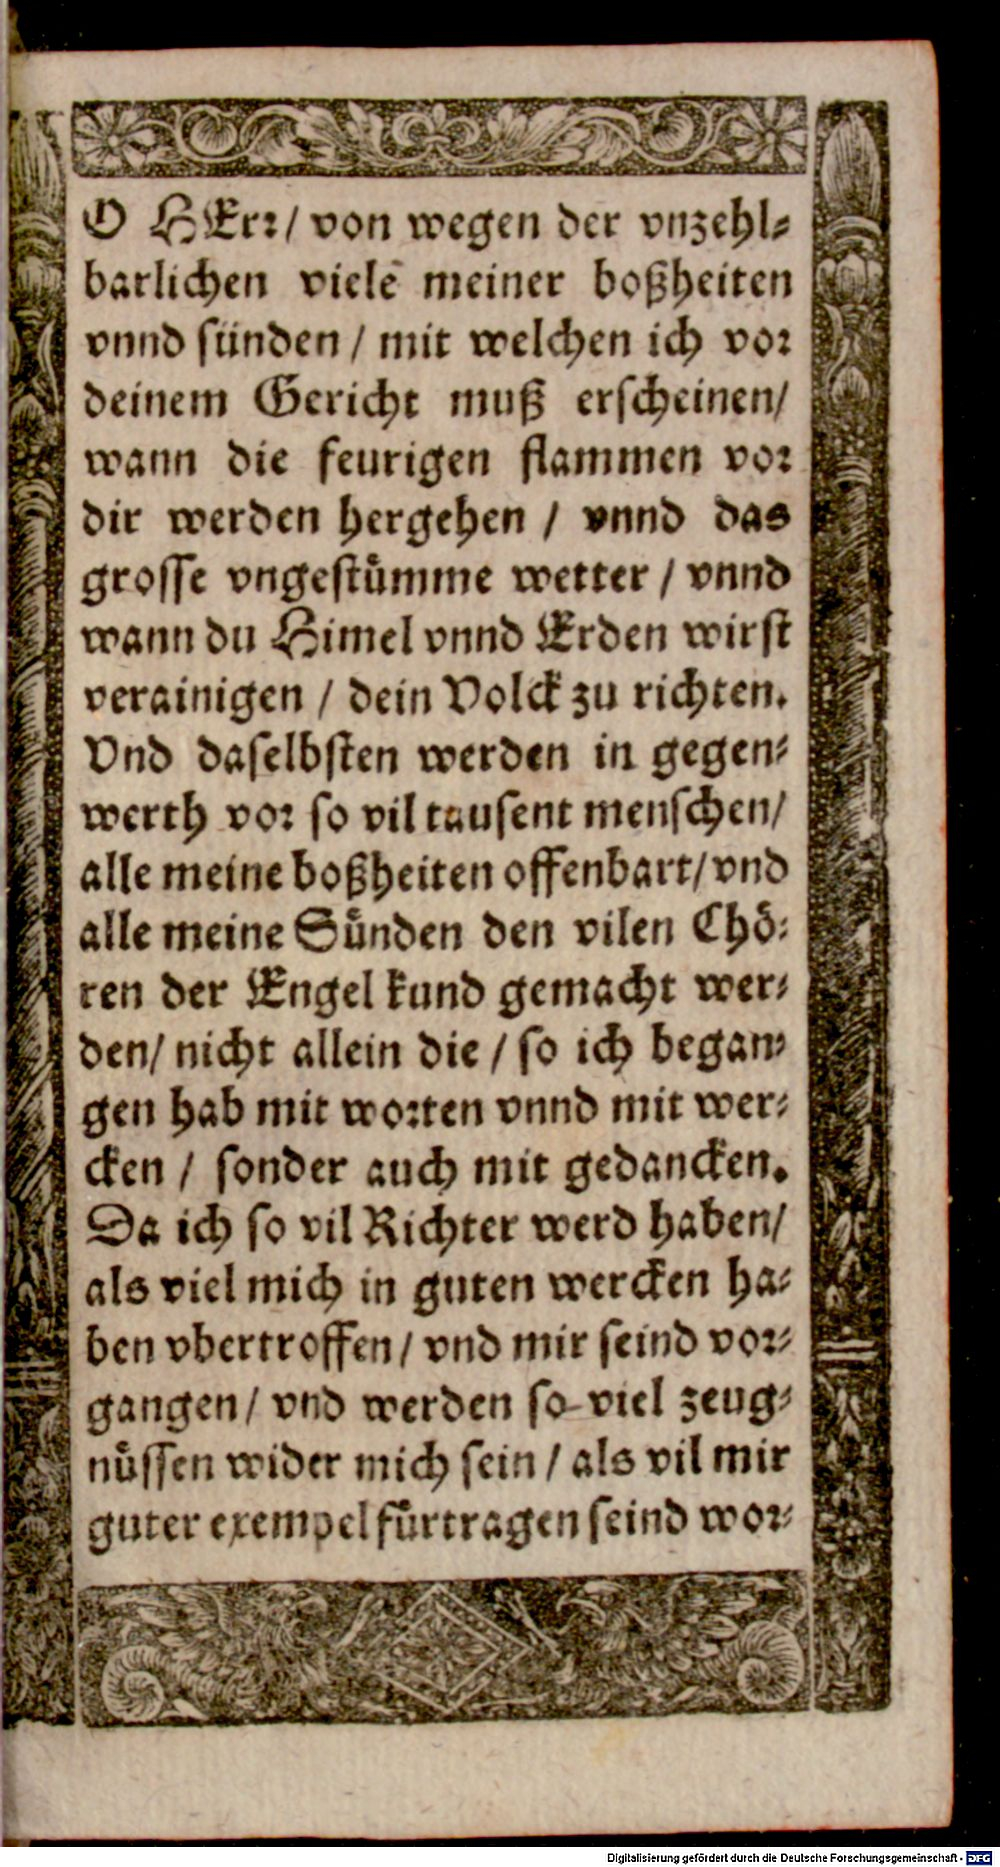 O HErr/ von wegen der vnzehl-
barlichen vielē meiner boßheiten
vnnd sünden / mit welchen ich vor
deinem Gericht muß erscheinen/
wann die feurigen flammen vor
dir werden hergehen / vnnd das
grosse vngestuͤmme wetter / vnnd
wann du Himel vnnd Erden wirst
verainigen / dein Volck zu richten.
Vnd daselbsten werden in gegen-
werth vor so vil tausent menschen/
alle meine boßheiten offenbart/ vnd
alle meine Suͤnden den vilen Choͤ-
ren der Engel kund gemacht wer-
den/ nicht allein die / so ich began-
gen hab mit worten vnnd mit wer-
cken / sonder auch mit gedancken.
Da ich so vil Richter werd haben/
als viel mich in guten wercken ha-
ben vbertroffen / vnd mir seind vor-
gangen / vnd werden so viel zeug-
nuͤssen wider mich sein / als vil mir
guter exempel fuͤrtragen seind wor-
Digitalisierung gefördert durch die Deutsche Forschungsgemeinschaft - DFG